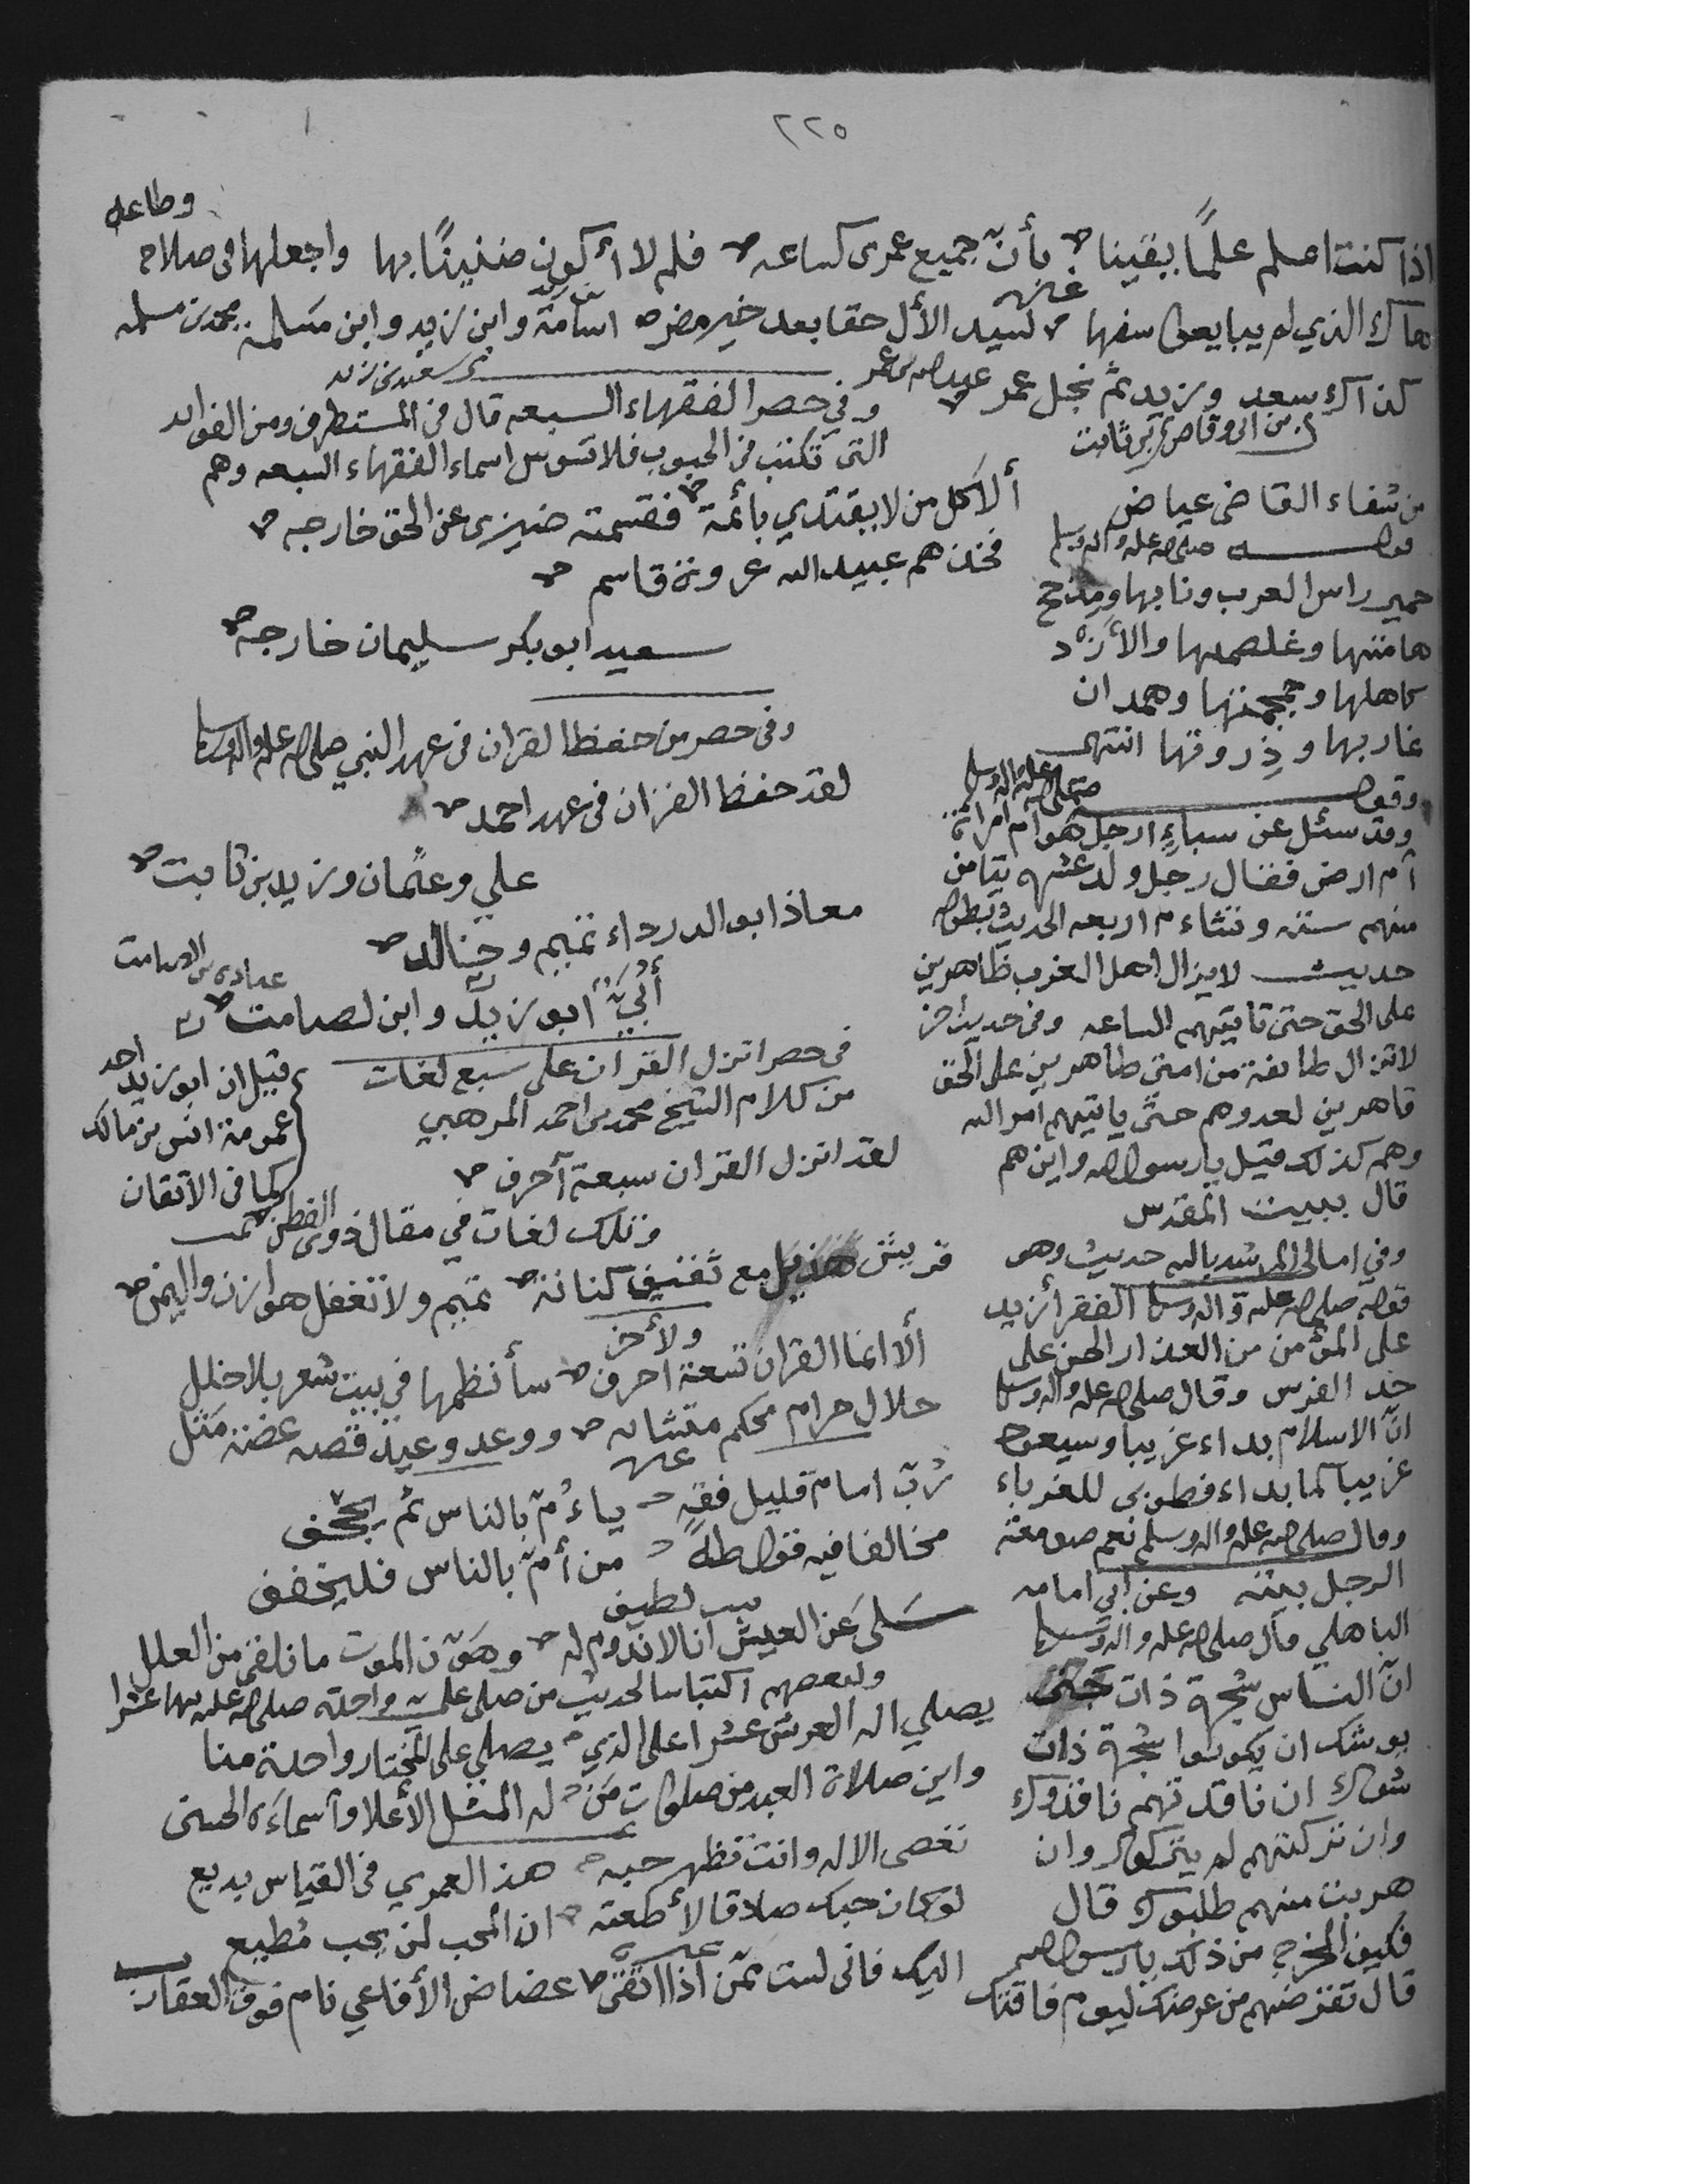 ٢٢٥
وطاعه
اذا كنت اعلم علمًا يقينا بأنّ جميع عمرى كساعه فلم لا أكون ضنينًا بها واجعلها فى صلاح
غيره
هاك الذي لم يبايعوا سفها لسيد الأل حقا بعد خير مضر اسامة وابن زيد وابن مسلمة محمد بن مسلمه
سعيد بن زيد
كذاك سعد وزيد ثمّ نجل عمر عبد الله بن عمر
بن ابى وقاص بن ثابت
وفي حصر الفقهاء السبعه قال فى المستطرف ومن الفوائد
التى تكتب فى الحبوب فلا تسوس اسماء الفقهاء السبعه وهم
ألا كل من لا يقتدي بأئمة فقسمته ضيزى عن الحق خارجه
فخذهم عبيد الله عروة قاسم
سعيد ابو بكر سليمان خارجه
وفى حصر من حفظ القران فى عهد النبي صلى الله عليه واله وسلم
لقد حفظ القران فى عهد احمد
علي وعثمان وزيد بن ثابت
معاذ ابو الدرداء تميم وخالد
أُبيّ ابو زيد وابن لصامت
عبادة بن الصامت
قيل ان ابو زيد احد
عمومة انس بن مالك
كما فى الاتقان
فى حصر انزل القران على سبع لغات
من كلام الشيخ محمد بن احمد المرهبي
لقد انزل القران سبعة آحرف
وتلك لغات في مقال ذوى الفطن
قريش هذيل مع ثقيف كنانة تميم ولا تغفل هوازن واليمن
ولأخر
ألا انما القران تسعة احرف سأنظمها في بيت شعر بلا خلل
حلال حرام محكم متشابه ووعد وعيد قصه عضة مَثل
غيره
رُبّ امام قليل فقه ياءُمّ بالناس ثم يجحف
مخالفا فيه قول طه من أمّ بالناس فليخفف
بيت لطيف
سَلى عن العيش انا لا ندوم له وهَوّن الموت ما نلقى من العلل
ولبعضهم اقتباسا لحديث من صلى علي واحلة صلى الله عليه بها عشرا
يصلي اله العرش عشرا على الذي يصلي على المختار واحدة منا
واين صلاة العبد من صلوات مَن له المثل الأعلا وآسماءَه الحسنى
تعصى الاله وانت تظهر حبه هذا لعمري فى القياس بديع
لو كان حبك صادقا لأطعته ان المحب لمن يحب مُطيع
غيره
اليك فانى لست ممّن اذا اتقى عضاض الأفاعي نام فوق العقارب
من شفاء القاضى عياض
قوله صلى الله عليه واله وسلم
حمير راس العرب ونابها ومذحج
هامتها وغلصمتها والأزد
كاهلها وجمجمتها وهمدان
غاربها وذِروتها انتهى
وقوله صلى الله عليه واله وسلم
وقد سئل عن سباءٍ ارجل هو ام امراة
آم ارض فقال رجل ولد عشره تيامن
منهم ستة وتشاءم اربعه الحديث بطوله
حديث لا يزال اهل الغرب ظاهرين
على الحق حتى تاتيهم الساعه وفى حديث اخر
لا تزال طائفة من امتى ظاهرين على الحق
قاهرين لعدوهم حتى ياتيهم امر الله
وهم كذلك قيل يا رسول الله واين هم
قال ببيت المقدس
وفي امالى المرشد بالله حديث وهو
قوله صلى الله عليه واله وسلم الفقر أزيد
على المؤمن من العذار الحسن على
خد الفرس وقال صلى الله عليه واله وسلم
انّ الاسلام بداء غريبا وسيعود
غريبا كما بداء فطوبى للغرباء
وقال صلى الله عليه واله وسلم نعم صومعة
الرجل بيته وعن أبي امامه
الباهلي قال صلى الله عليه واله وسلم
انّ الناس شجرة ذات جنى
يوشك ان يكونوا شجرة ذات
شوك ان ناقدتهم ناقدوك
وان تركتهم لم يتركوك وان
هربت منهم طلبوك قال
فكيف المخرج من ذلك يا رسول الله
قال تقرضهم من عرضك ليوم فاقتك